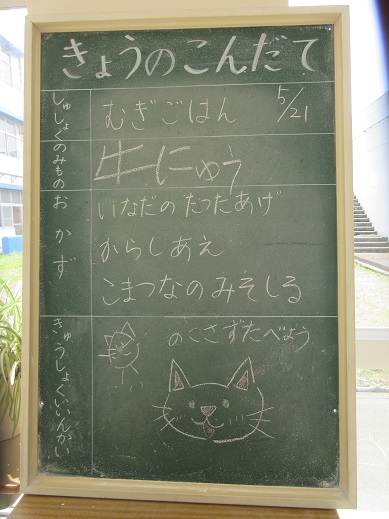 きょうのこんだて
5/21
しゅしょく
むぎごはん
のみもの
牛にゅう
おかず
いなだのたつたあげ
からしあえ
こまつなのみそしる
きゅうしょくいいんかい
のこさずたべよう